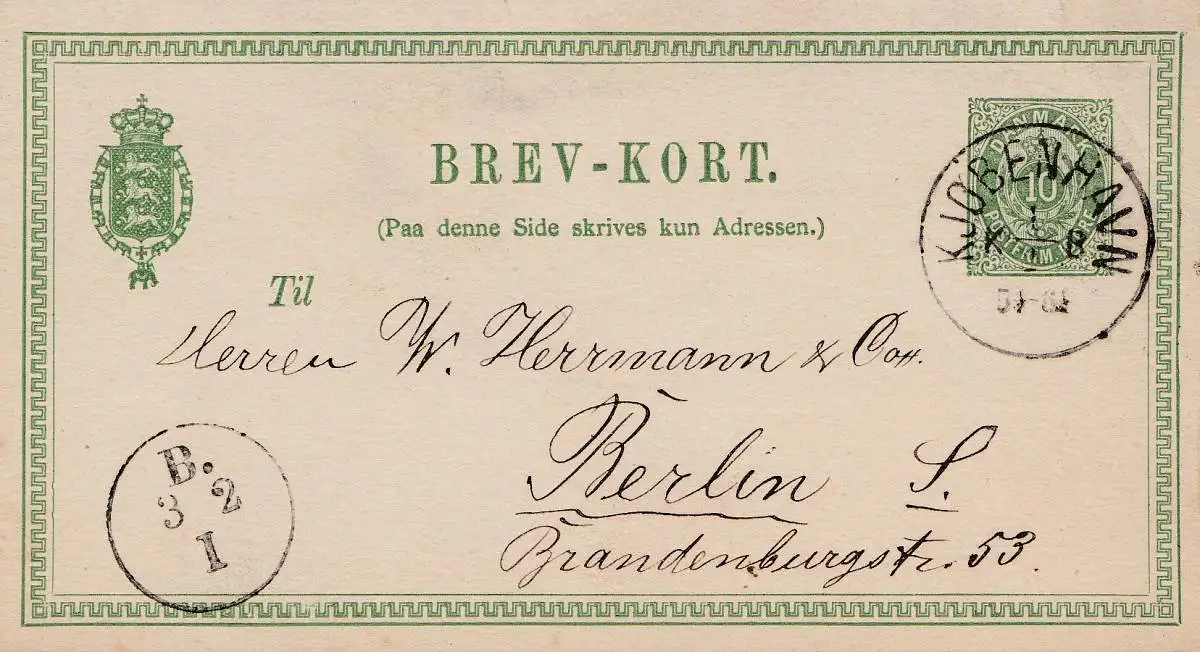 BREV-KORT.
(Paa denne Side skrives kun Adressen.)
DANMARK
10
KJØBENHAVN
1
K B
Til
Herren W. Herrmann & Co
Berlin S.
Brandenburgstr. 53.
B.
3 2
1